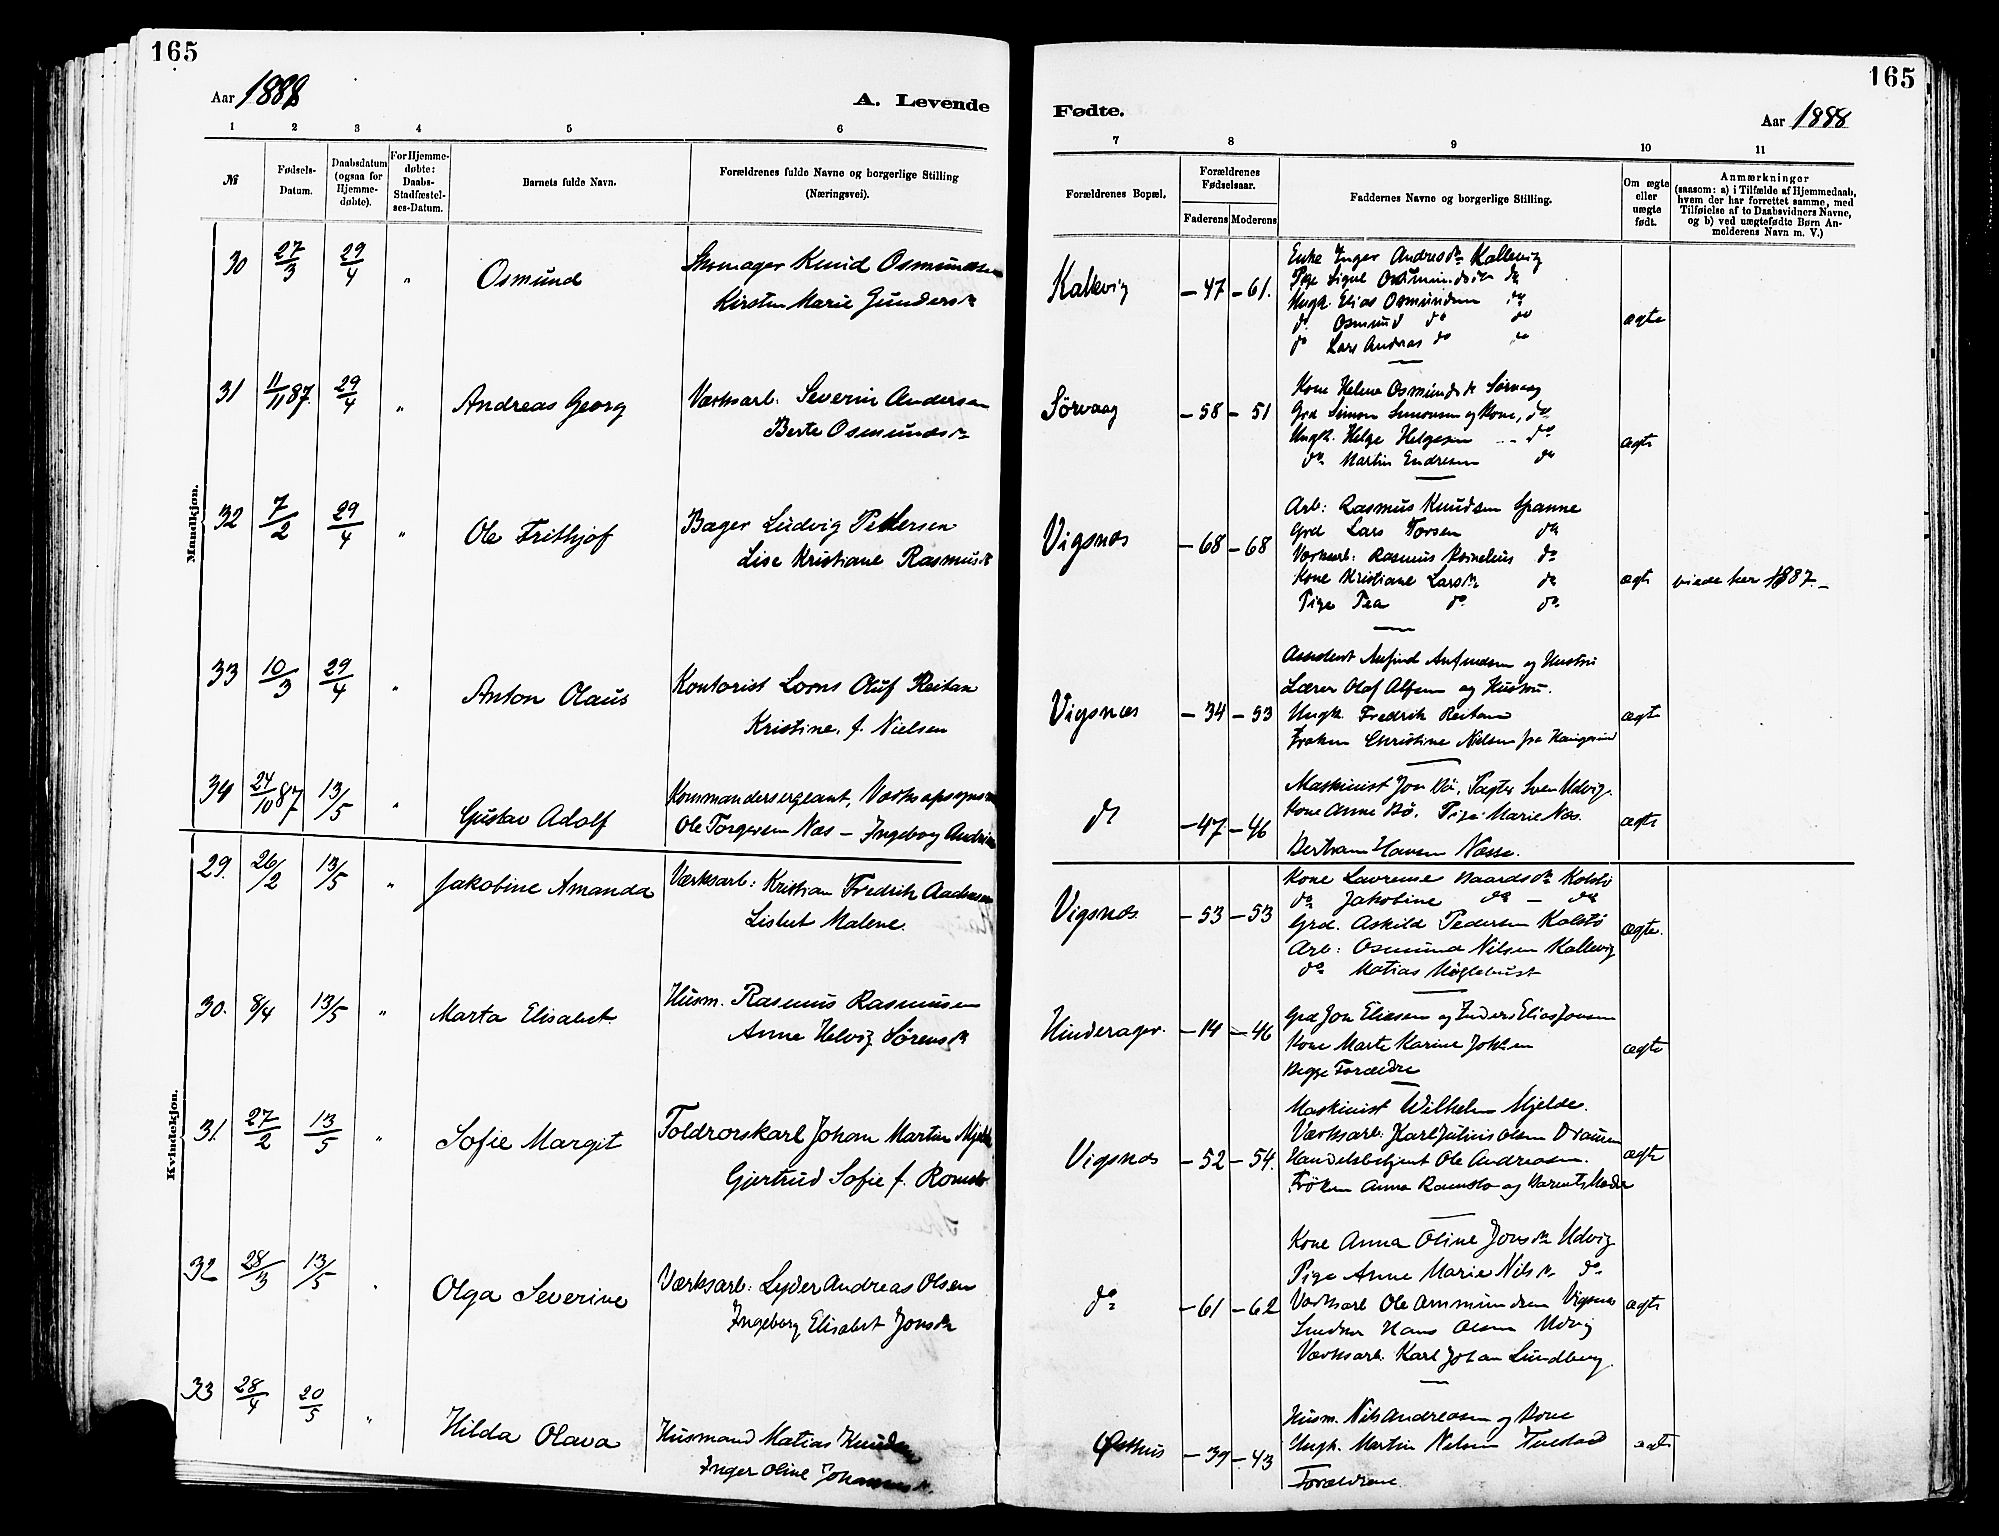 165
Aar 1888
A. Levende
1 2 3 4 5 6
№
Fødsels-
Datum.
Daabsdatum
(ogsaa for
Hjemme-
døbte).
For Hjemme-
døbte:
Daabs-
Stadfæstel-
ses-Datum.
Barnets fulde Navn.
Forældrenes fulde Navne og borgerlige Stilling
(Næringsvei).
Mandkjøn.
30 27/3 29/4 " Osmund Skomager Knud Osmundsen
Kirsten Marie Gundersdr
31 11/11 87. 29/4 " Andreas Georg Værksarb: Severin Andersen
Berte Osmundsdr
32 7/2 29/4 " Ole Frithjof Bager Ludvig Pettersen
Lise Kristiane Rasmusdr
33 10/3 29/4 " Anton Olaus Kontorist Lorns Oluf Reitan
Kristine, f. Nielsen
34 24/10 87 13/5 " Gustav Adolf Kommandersergeant,
Ole Torgersen Næs – Ingeborg
Kvindekjøn.
29. 26/2 13/5 " Jakobine Amanda Værksarb: Kristian Fredrik
Lisbet Malene.
30. 8/4 13/5 " Marta Elisabet. Husm. Rasmus Rasmusen
Anne Helvig Sørensdr
31. 27/2 13/5 " Sofie Margit Toldrorskarl Johan Martin Mjelde
Gjertrud Sofie f. Romslo
32 28/3 13/5 " Olga Severine Værksarb: Lyder Andreas Olsen
Ingeborg Elisabet Jonsdr
33 28/4 20/5 " Hilda Olava Husmand Matias Knudsen
Inger Oline
165
Fødte.
Aar 1888
7 8 9 10 11
Forældrenes Bopæl.
Forældrenes
Fødselsaar.
Faderens Moderens
Faddernes Navne og borgerlige Stilling.
Om ægte
eller
uægte
født.
Anmærkninger
(saasom: a) i Tilfælde af Hjemmedaab,
hvem der har forrettet samme, med
Tilføielse af to Daabsvidners Navne,
og b) ved uægtefødte Børn An-
melderens Navn m. V.)
Kallevig – 47 – 61. Enke Inger Andresdr Kallevig
Pige Signe Osmundsdr do
Ungk. Elias Osmundsen do
do Osmund do do
do Lars Andreas do do
ægte
Sørvaag – 58 – 51 Kone Helene Osmundsdr Sørvaag
Grd Simon Simonsen og Kone, do
Ungk. Helge Helgesen do
do Martin Endresen do
ægte
Vigsnæs – 68 – 68 Arb: Rasmus Knudsen Spanne
Grd Lars Torsen do
Værksarb: Rasmus Kornelius do
Kone Kristiane Larsdr do
Pige Tea do do
ægte viede her 1887. –
Vigsnæs – 34 – 53 Assistent Anfind Anfindsen og Hustru
Lærer Olaf Alfsen og Hustru.
Ungk. Fredrik Reitan
Frøken Christine Nielsen fra Haugesund
ægte
do – 47 – 46 Maskinist Jon Bø, Sven Udvig.
Kone Anne Bø. Pige Marie Næs.
Bertram Hansen Næsse.
ægte
Vigsnæs – 53 – 53 Kone Lavrense Baardsdr Kolstø
do Jakobine do – do
Grd. Askild Pedersen Kolstø
Arb: Osmund Nilsen Kallevig
do Matias Møglebust
ægte.
Hinderager. – 14 – 46 Grd Jon Eliasen og Elias Jonsen
Kone Marte Karine
Begge Forældre
ægte
Vigsnæs – 52 – 54. Maskinist Wilhelm Mjelde.
Værksarb: Karl Julius Olsen
Handelsbetjent Ole Andreasen.
Frøken Anna Romslo og Barnets Moder
ægte
do – 61 – 62 Kone Anna Oline Jonsdr Udvig
Pige Anne Marie Nilsdr do
Værksarb Ole Ommundsen Vigsnæs
Hans Olsen Udvig
Værksarb. Karl Johan Lundberg.
ægte
Østhus – 39 – 43 Husm. Nils Andreasen og Kone
Ungk. Martin Nilsen
Forældrene
ægte